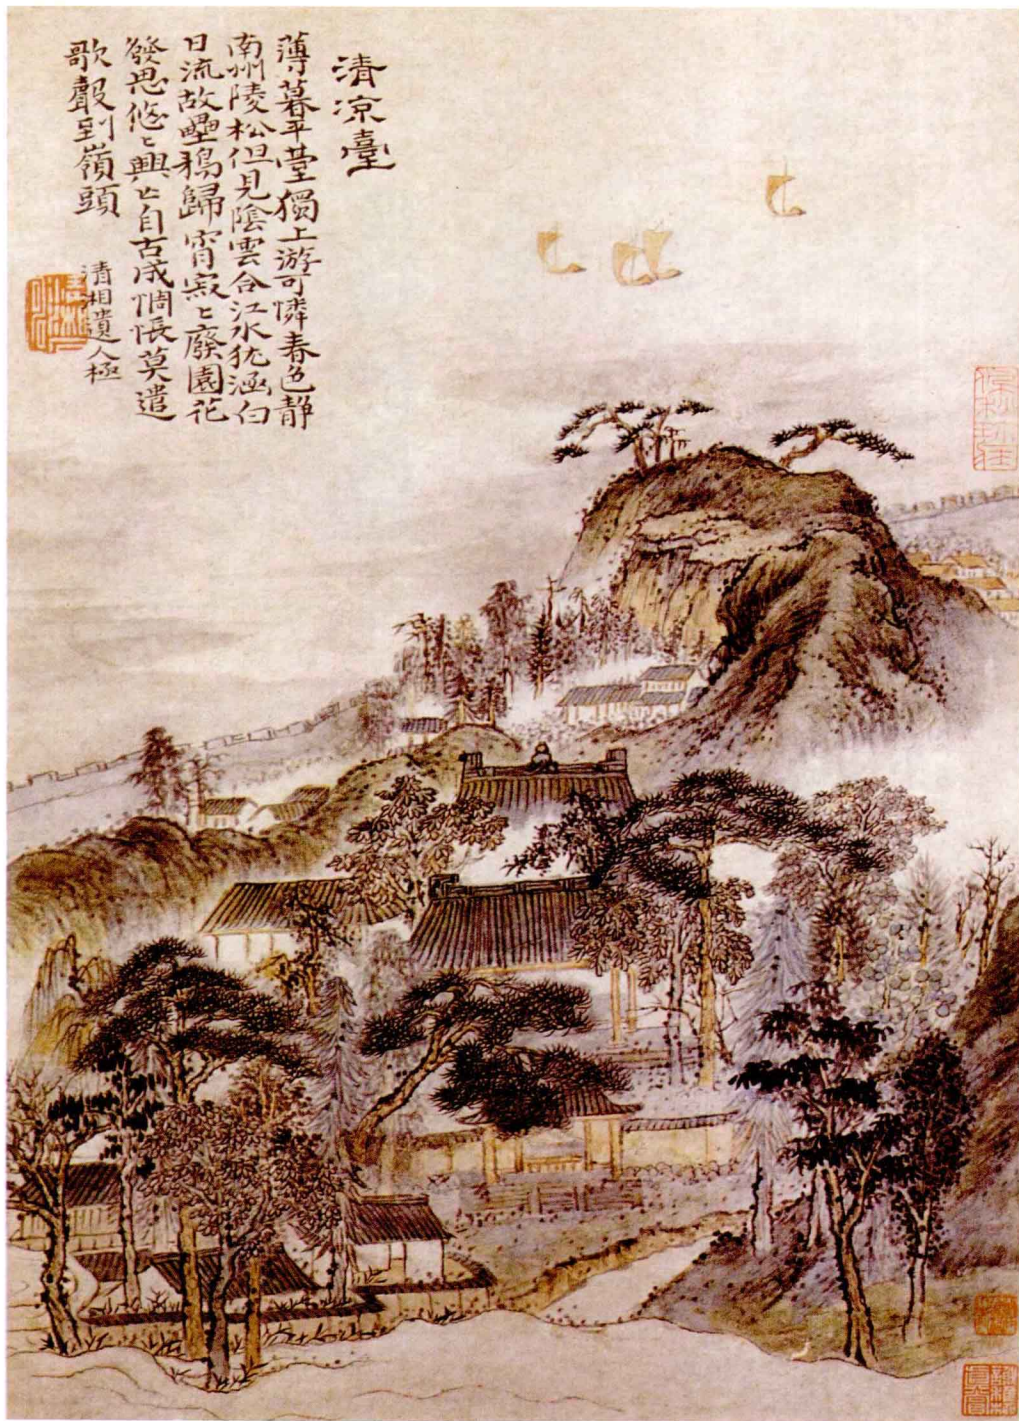 清凉臺
薄暮平臺獨上游可憐春色靜
南州陵松但見陰雲合江水犹涵白
日流故壘鴉歸宵寂〻廢園花
發思悠〻興亡自古成惆悵莫遣
歌聲到嶺頭
清湘遺人極